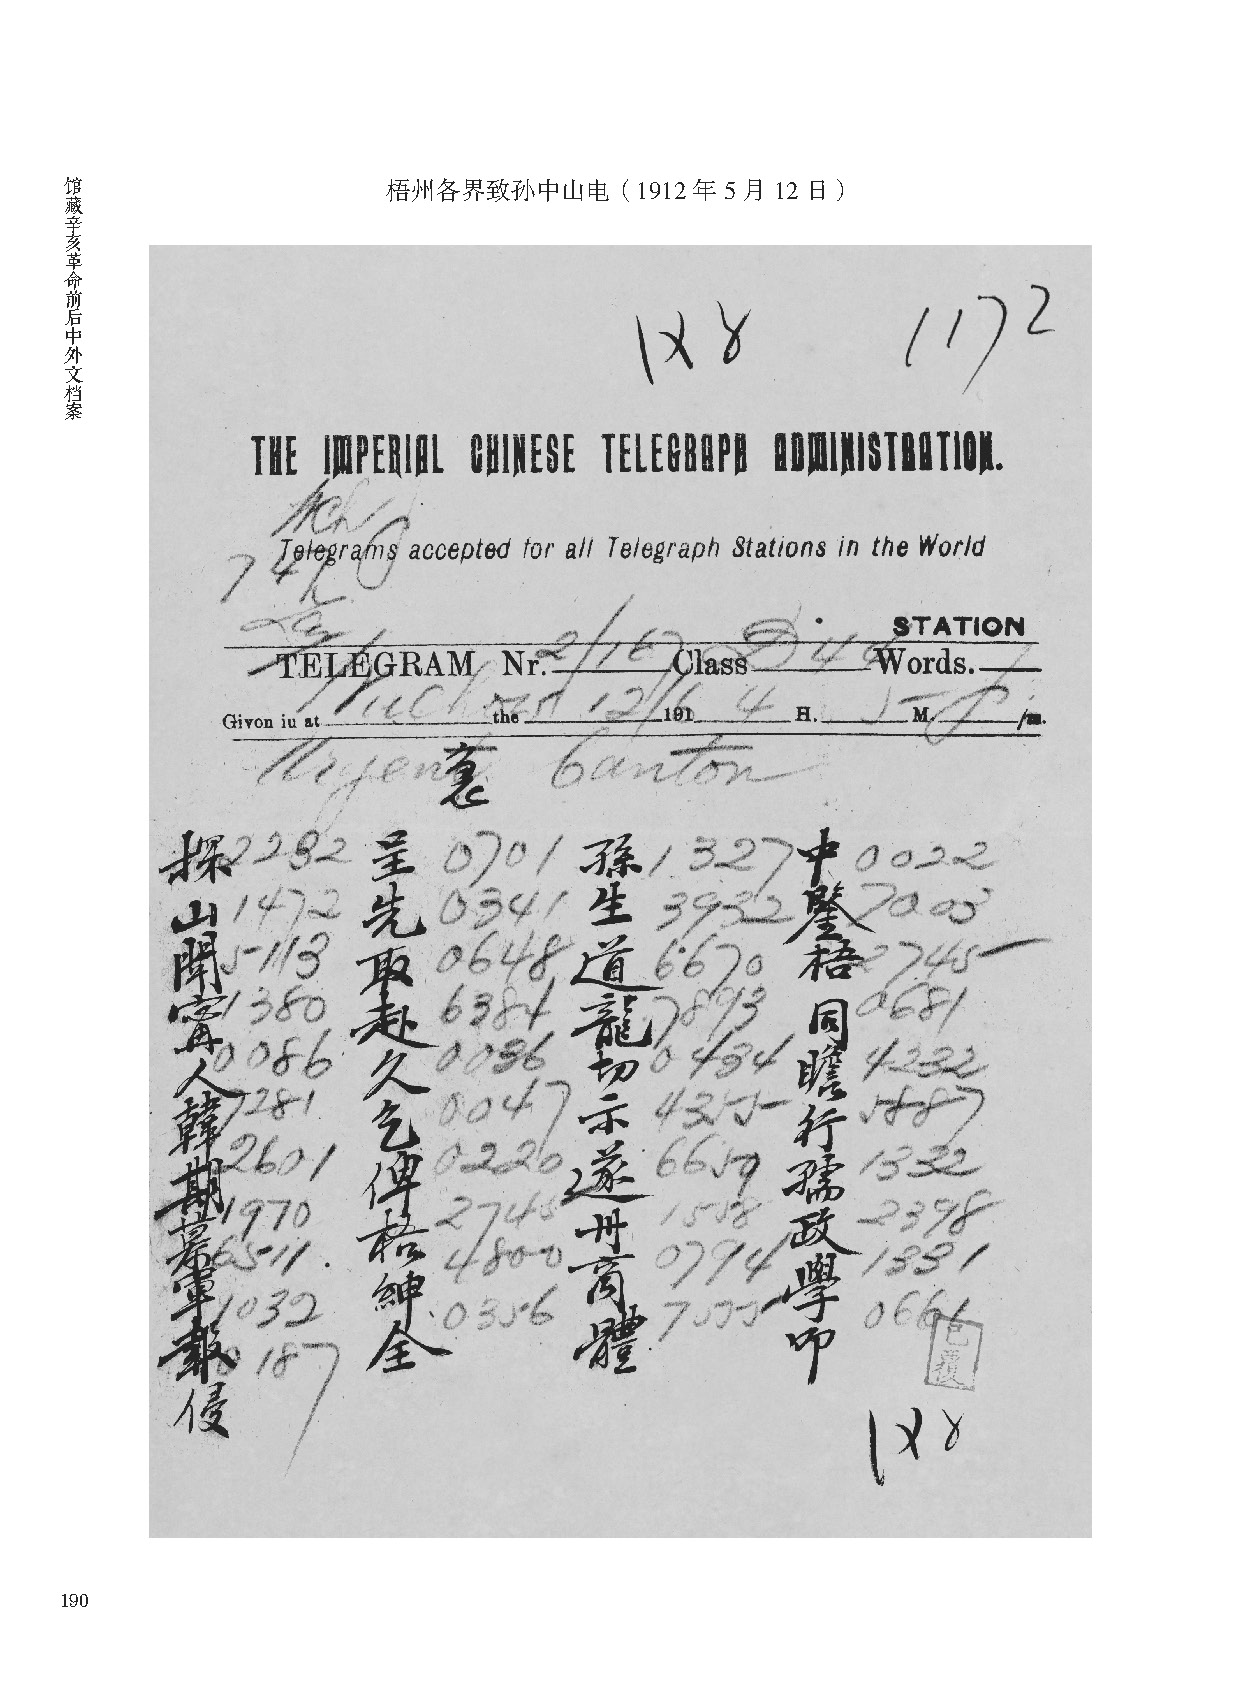 梧州各界致孙中山电（1912 年 5 月 12 日）
馆藏辛亥革命前后中外文档案
1172
THE IMPERIAL CHINESE TELEGRAPH ADMINISTRATION.
Telegrams accepted for all Telegraph Stations in the World
STATION
TELEGRAM Nr. 2/167 Class D 44 Words.
Givon iu at Wuchow the 12/5 191 4 H. 5 M. /m.
Urgent Canton
探 2232 呈 0701 孫 1327 中 0022
山 1472 先 0341 生 3932 鑒 7003
聞 5113 取 0648 道 6670 梧 2745
寗 1380 赴 6384 龍 7893 同 0681
人 0086 久 0036 切 0434 瞻 4232
韓 7281 乞 0047 示 4355 行 5887
期 2601 俾 0220 遂 6659 孺 1332
慕 1970 梧 2745 卅 1558 政 2398
軍 6511 紳 4800 商 0794 學 1331
報 1032 仝 0356 體 7555 叩 0661
侵 0187
已覆
190